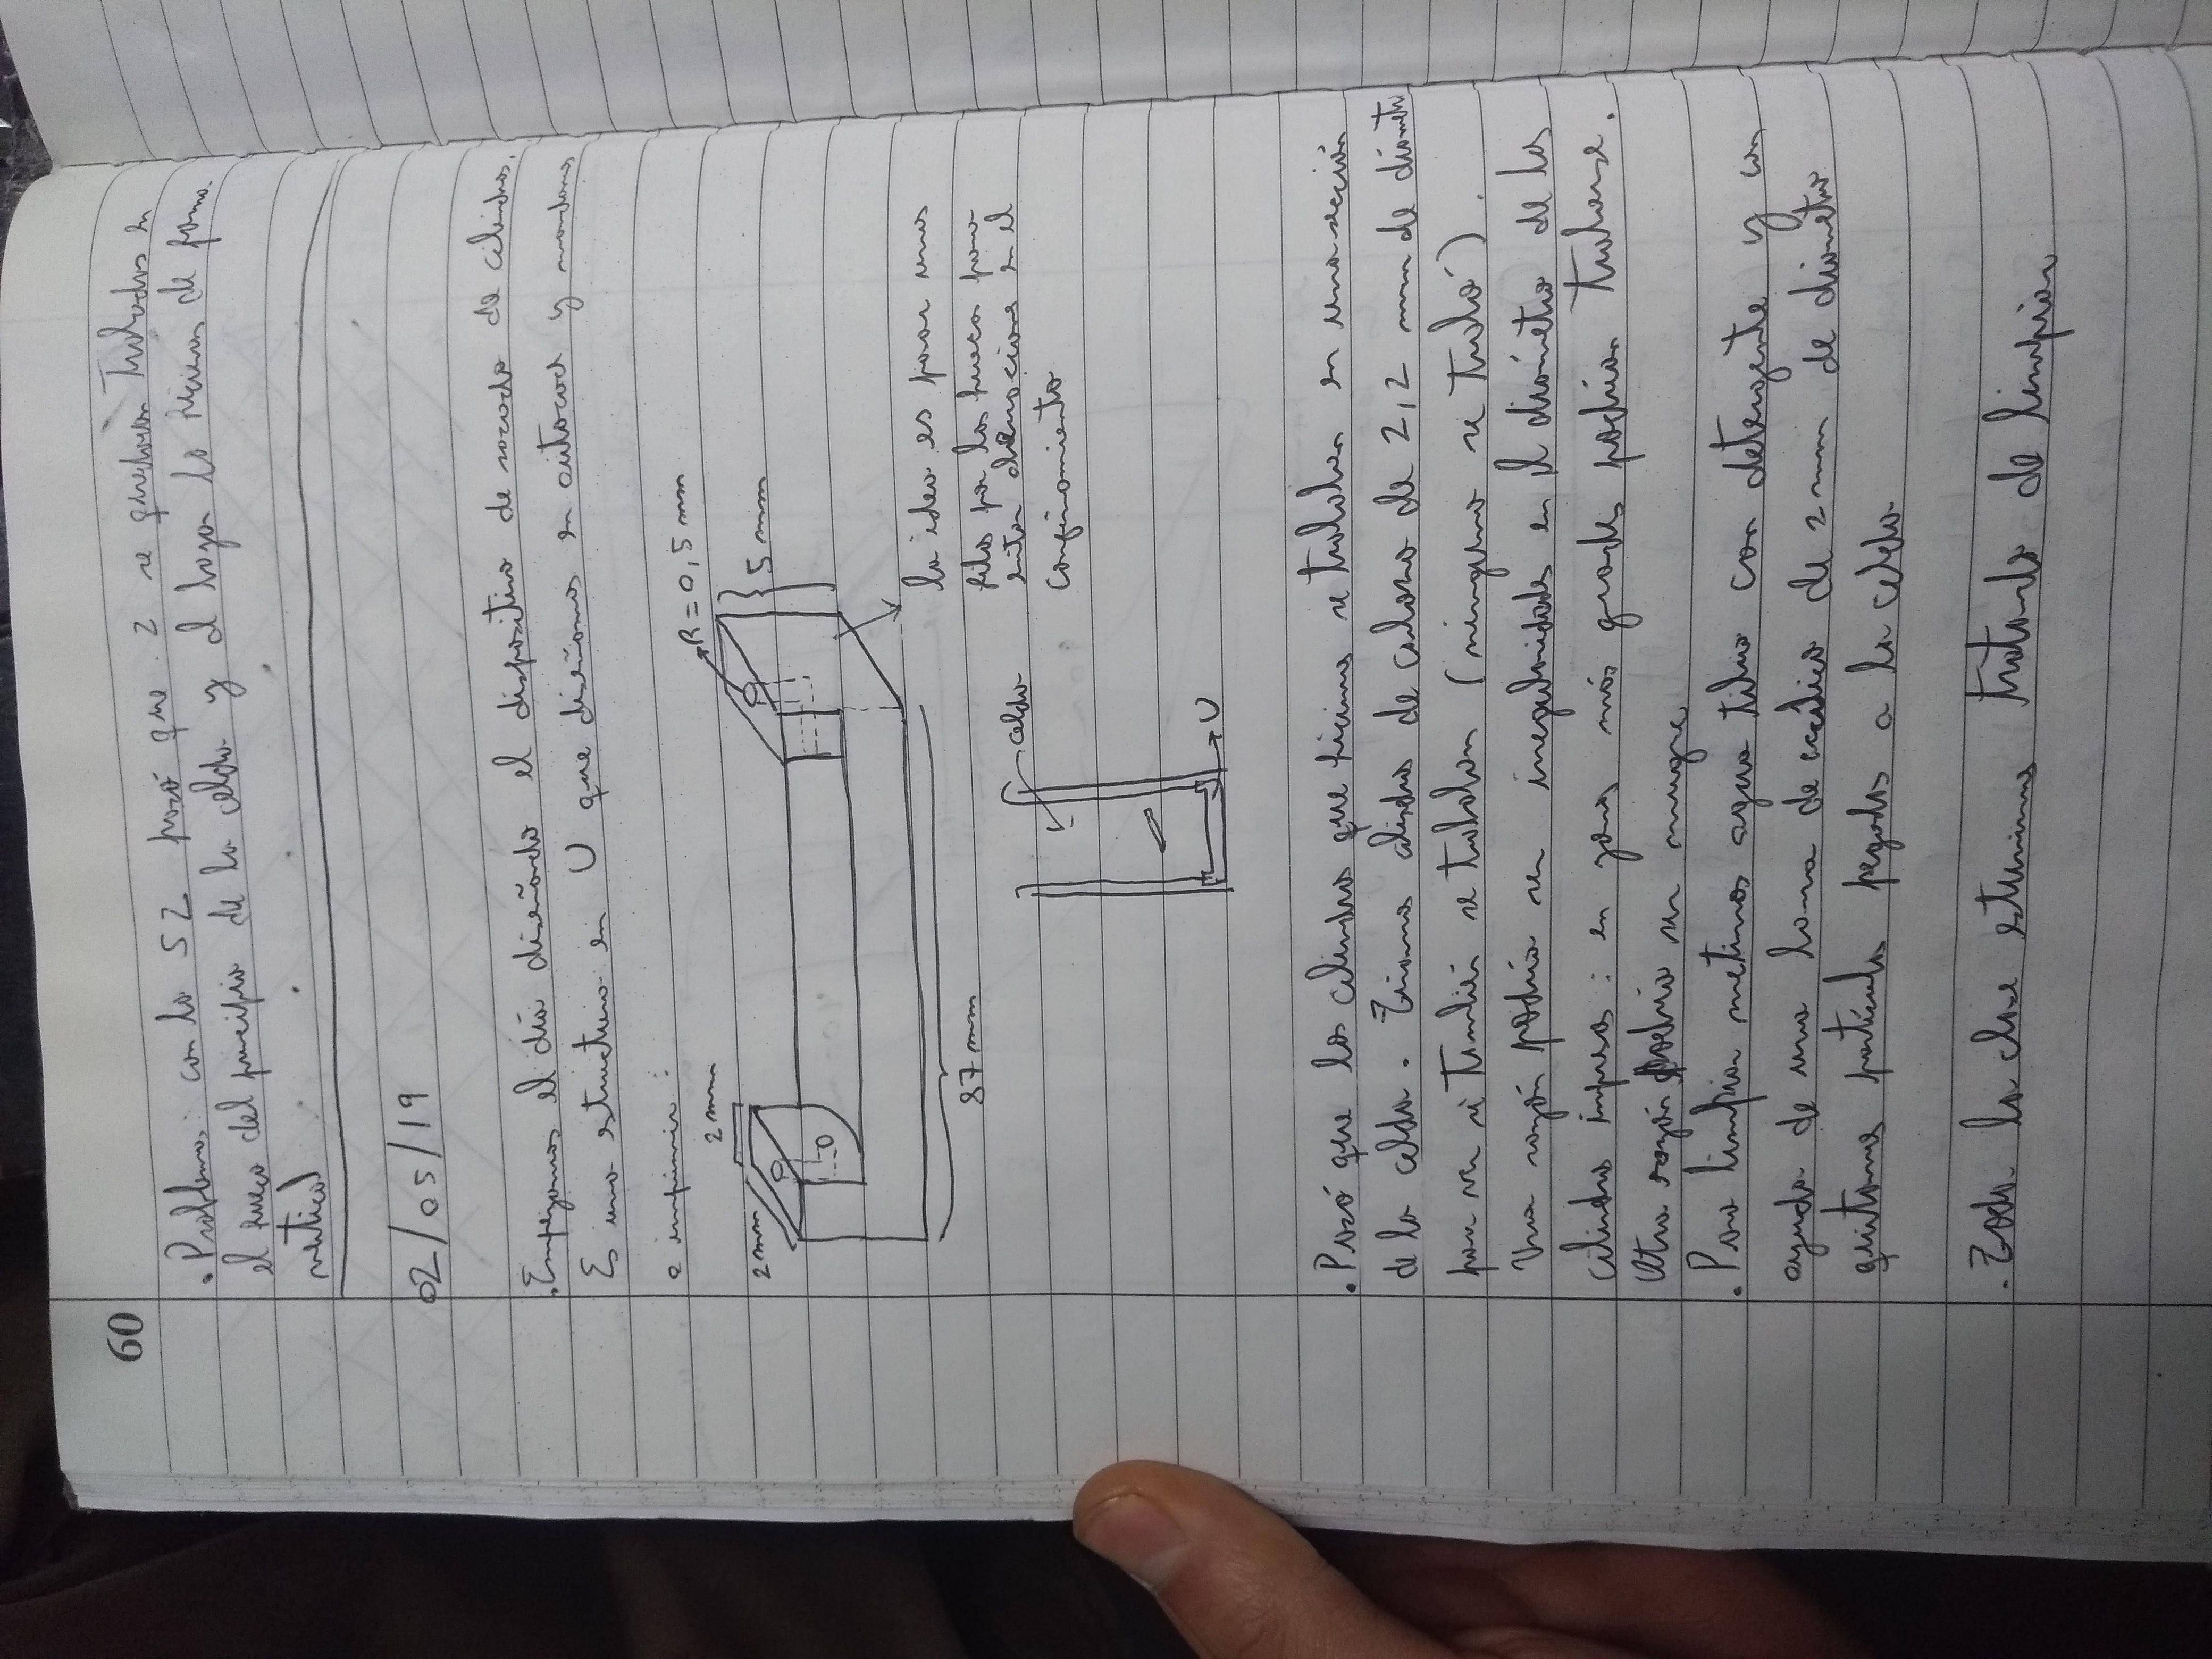 60
. Problemas: con la S2 pasó que 2 se quedaron trabados en
el hueco del principio de la celda y al bajar lo hicieron de forma
vertical
02/05/19
. Empezamos el día diseñando el dispositivo de sacado de cilindros.
Es una estructura en U que diseñamos en autocad y mandamos
a imprimir:
2 mm
R = 0,5 mm
2 mm
5 mm
87 mm
la idea es pasar unos
hilos por los huecos para
evitar en el
confinamiento
celda
U
. Pasó que los cilindros que hicimos se trababan en una sección
de la celda. Tiramos cilindros de carbono de 2,2 mm de diámetro
para ver si también se trababan (ninguno se trabó).
Una razón podría ser irregularidades en el diámetro de los
cilindros impresos: en zonas más grandes podrían trabarse.
Otra razón podría ser mugre
. Para limpiar metimos agua tibia con detergente y con
ayuda de una de acrílico de 2 mm de diámetro
quitamos partículas pegadas a la celda
. Toda la clase estuvimos tratando de limpiar